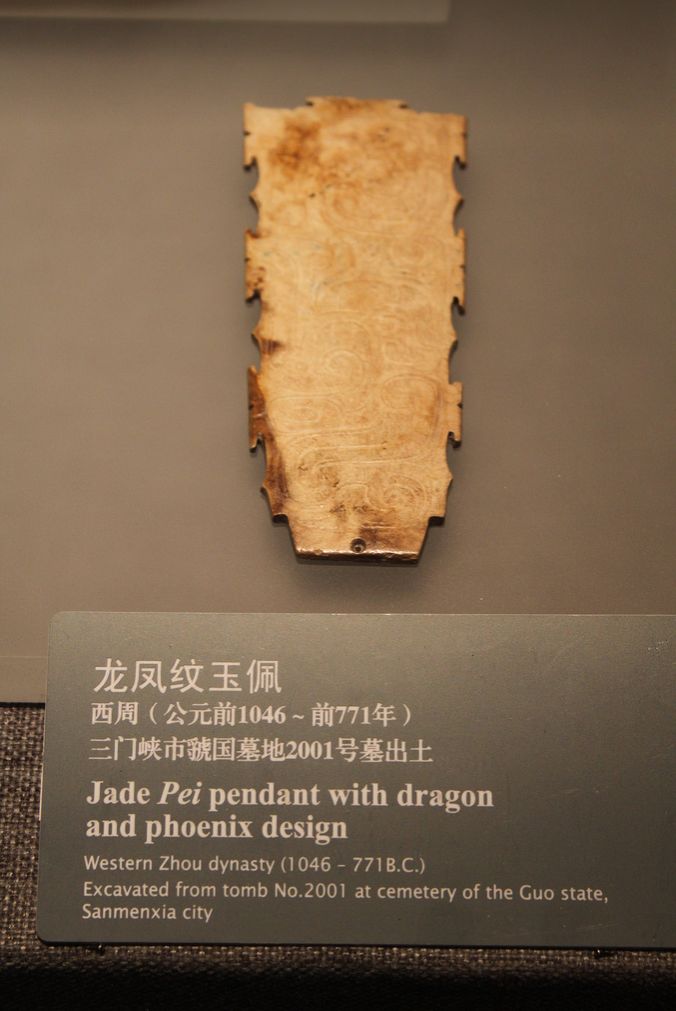 龙凤纹玉佩
西周（公元前1046～前771年）
三门峡市虢国墓地2001号墓出土
Jade Pei pendant with dragon
and phoenix design
Western Zhou dynasty (1046 – 771B.C.)
Excavated from tomb No.2001 at cemetery of the Guo state,
Sanmenxia city